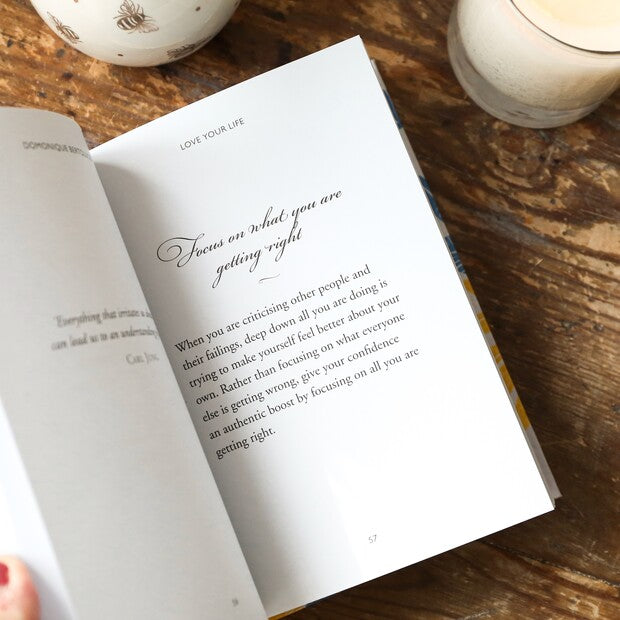 DOMONIQUE
Everything that irritates
can lead us to an understanding
CARL JUNG
LOVE YOUR LIFE
Focus on what you are
getting right
When you are criticising other people and
their failings, deep down all you are doing is
trying to make yourself feel better about your
own. Rather than focusing on what everyone
else is getting wrong, give your confidence
an authentic boost by focusing on all you are
getting right.
57